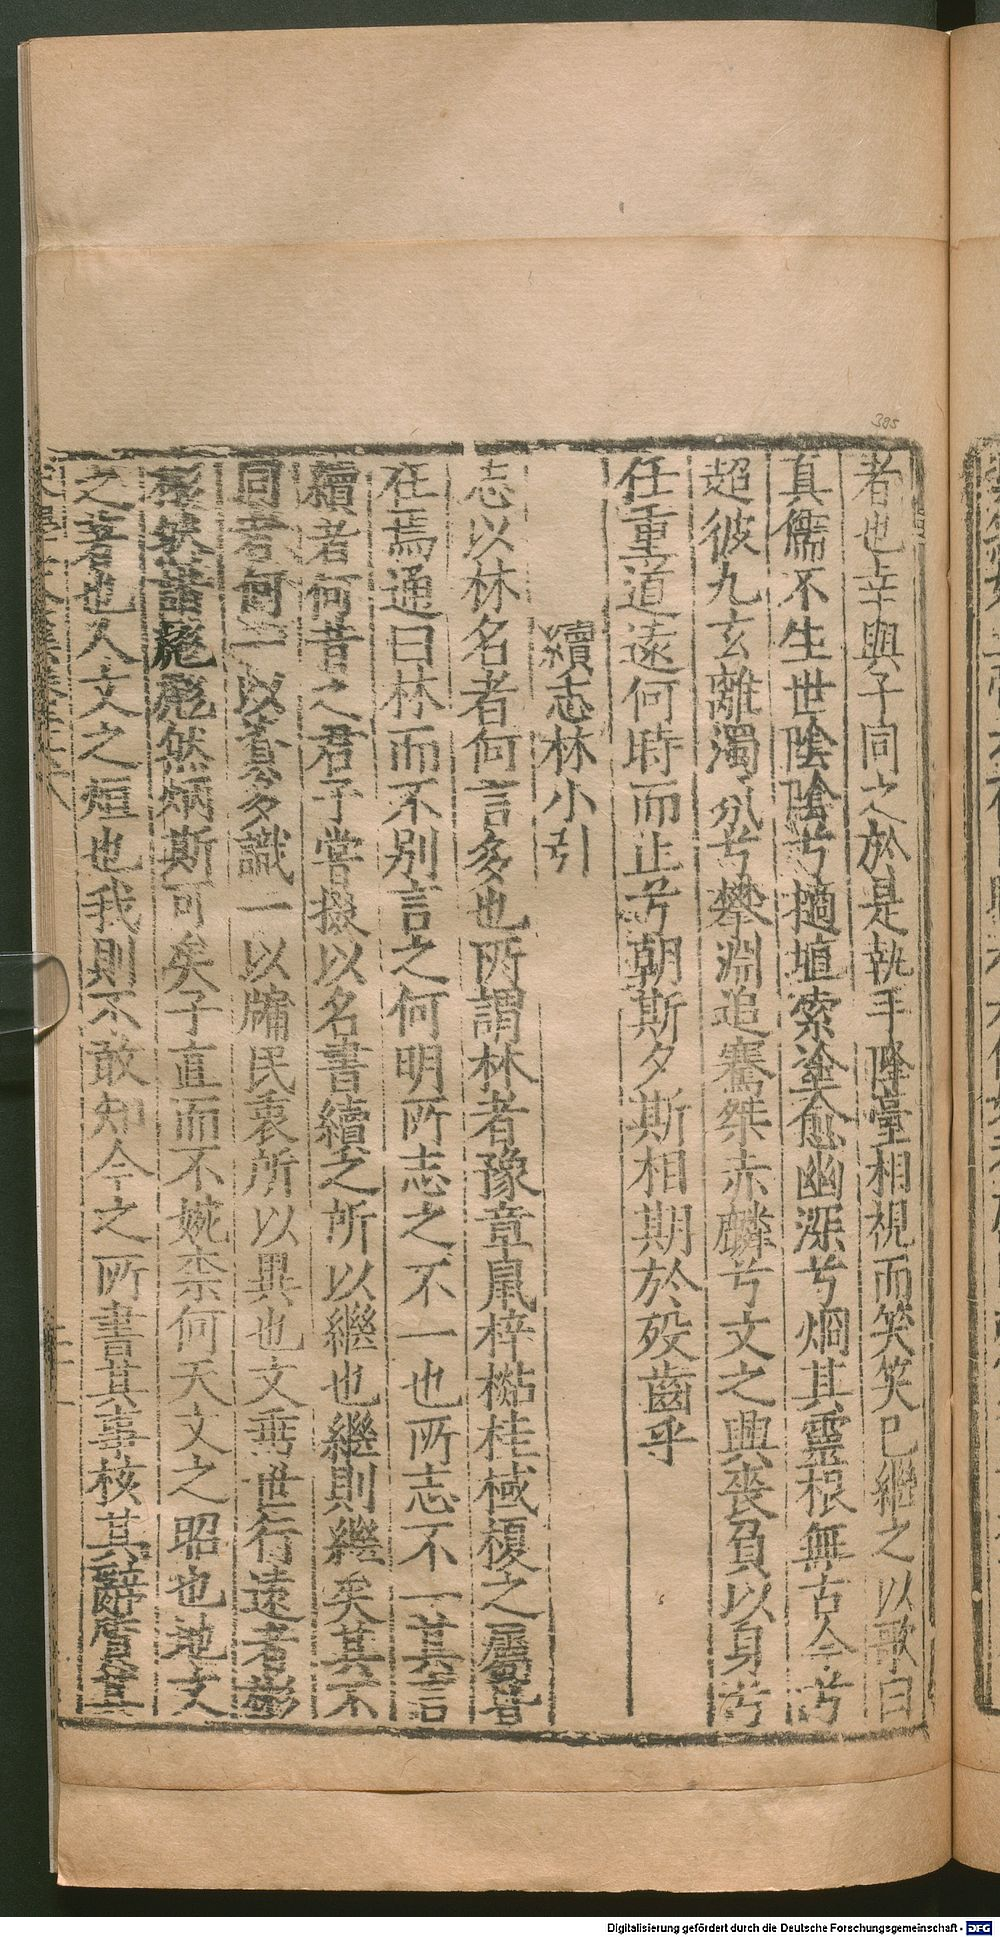 者也幸與子同之於是執手降臺相視而笑笑已繼之以歌曰
真儒不生世陰陰兮擿埴索塗愈幽深兮烱其靈根無古今兮
超彼九玄離濁氛兮攀淵追騫桀赤麟兮文之興喪負以身兮
任重道遠何時而止兮朝斯夕斯相期於歿齒乎
續志林小引
志以林名者何言多也所謂林者豫章鼠梓檆桂棫榎之屬皆
在焉通曰林而不別言之何明所志之不一也所志不一其言
續者何昔之君子嘗掇以名書續之所以繼也繼則繼矣其不
同者何一以蓄多識一以牗民衷所以異也文垂世行遠者彬
彬然語彪彪然炳斯可矣子直而不婉柰何天文之昭也地文
之著也人文之烜也我則不敢知今之所書其事核其辭
385
Digitalisierung gefördert durch die Deutsche Forschungsgemeinschaft - DFG